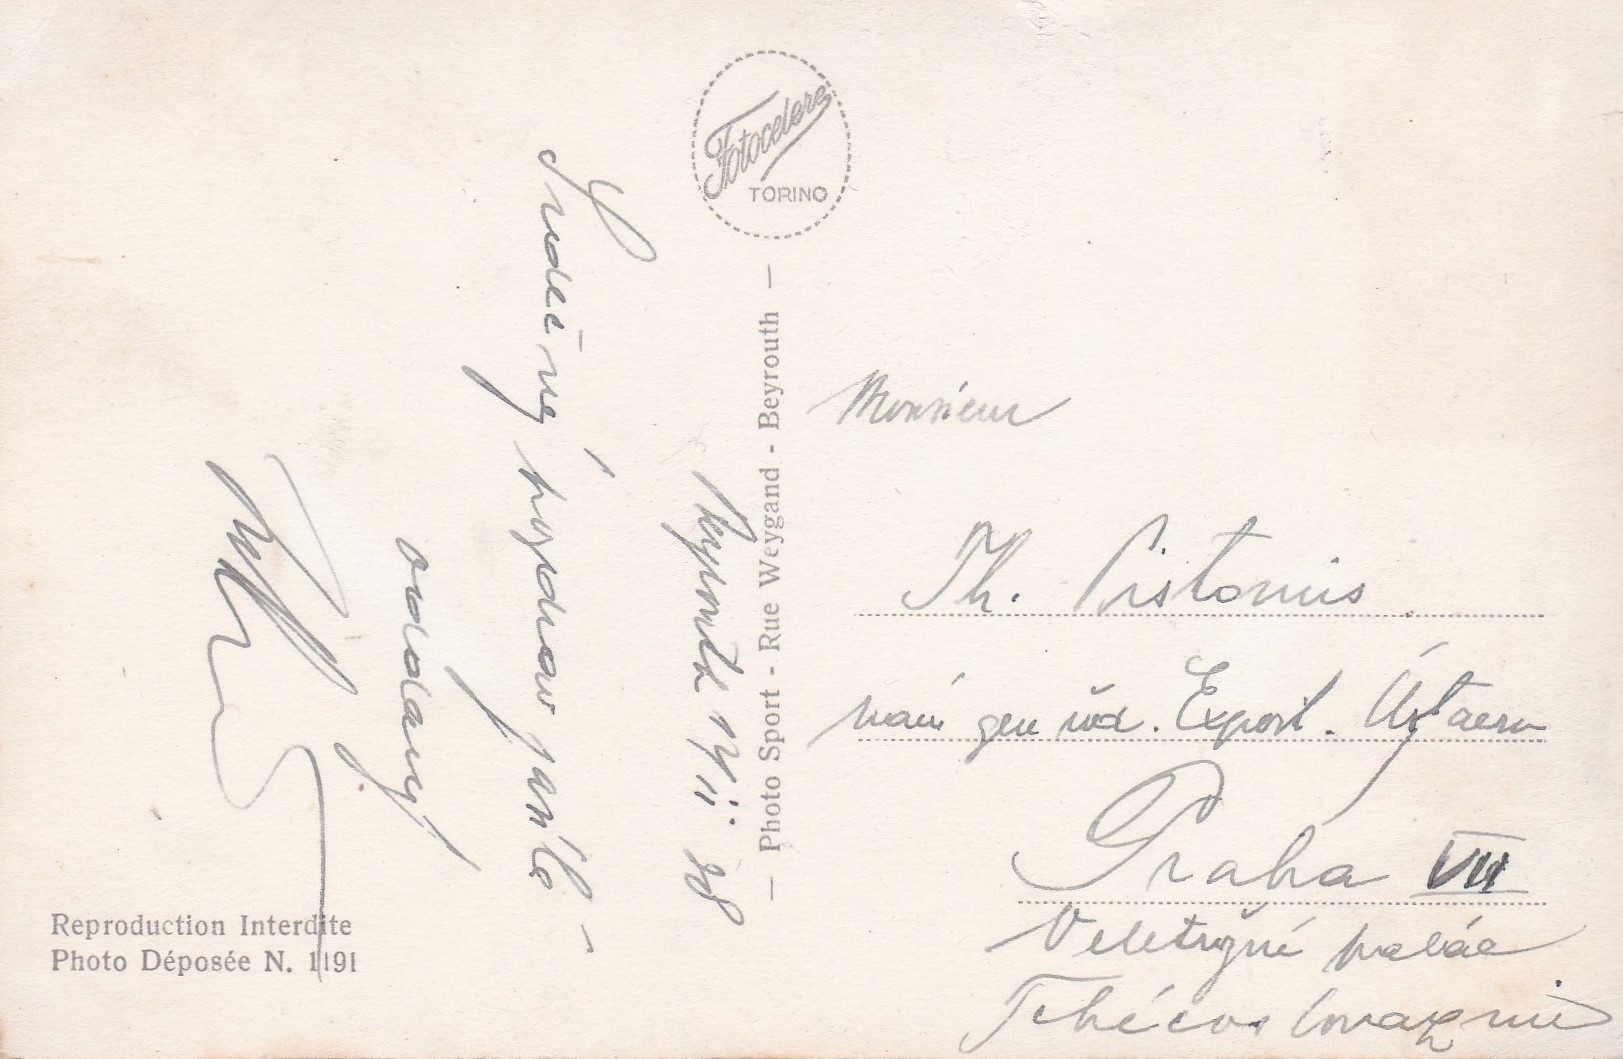 Fotocelere
TORINO
— Photo Sport - Rue Weygand - Beyrouth —
Beyrouth 12/II 38
Srdečný pozdrav
oddaný
Reproduction Interdite
Photo Déposée N. 1191
Monsieur
Th. Pistorius
gen řed. Export. Ústavu
Praha VII
Veletržní palác
Tchécoslovaquie